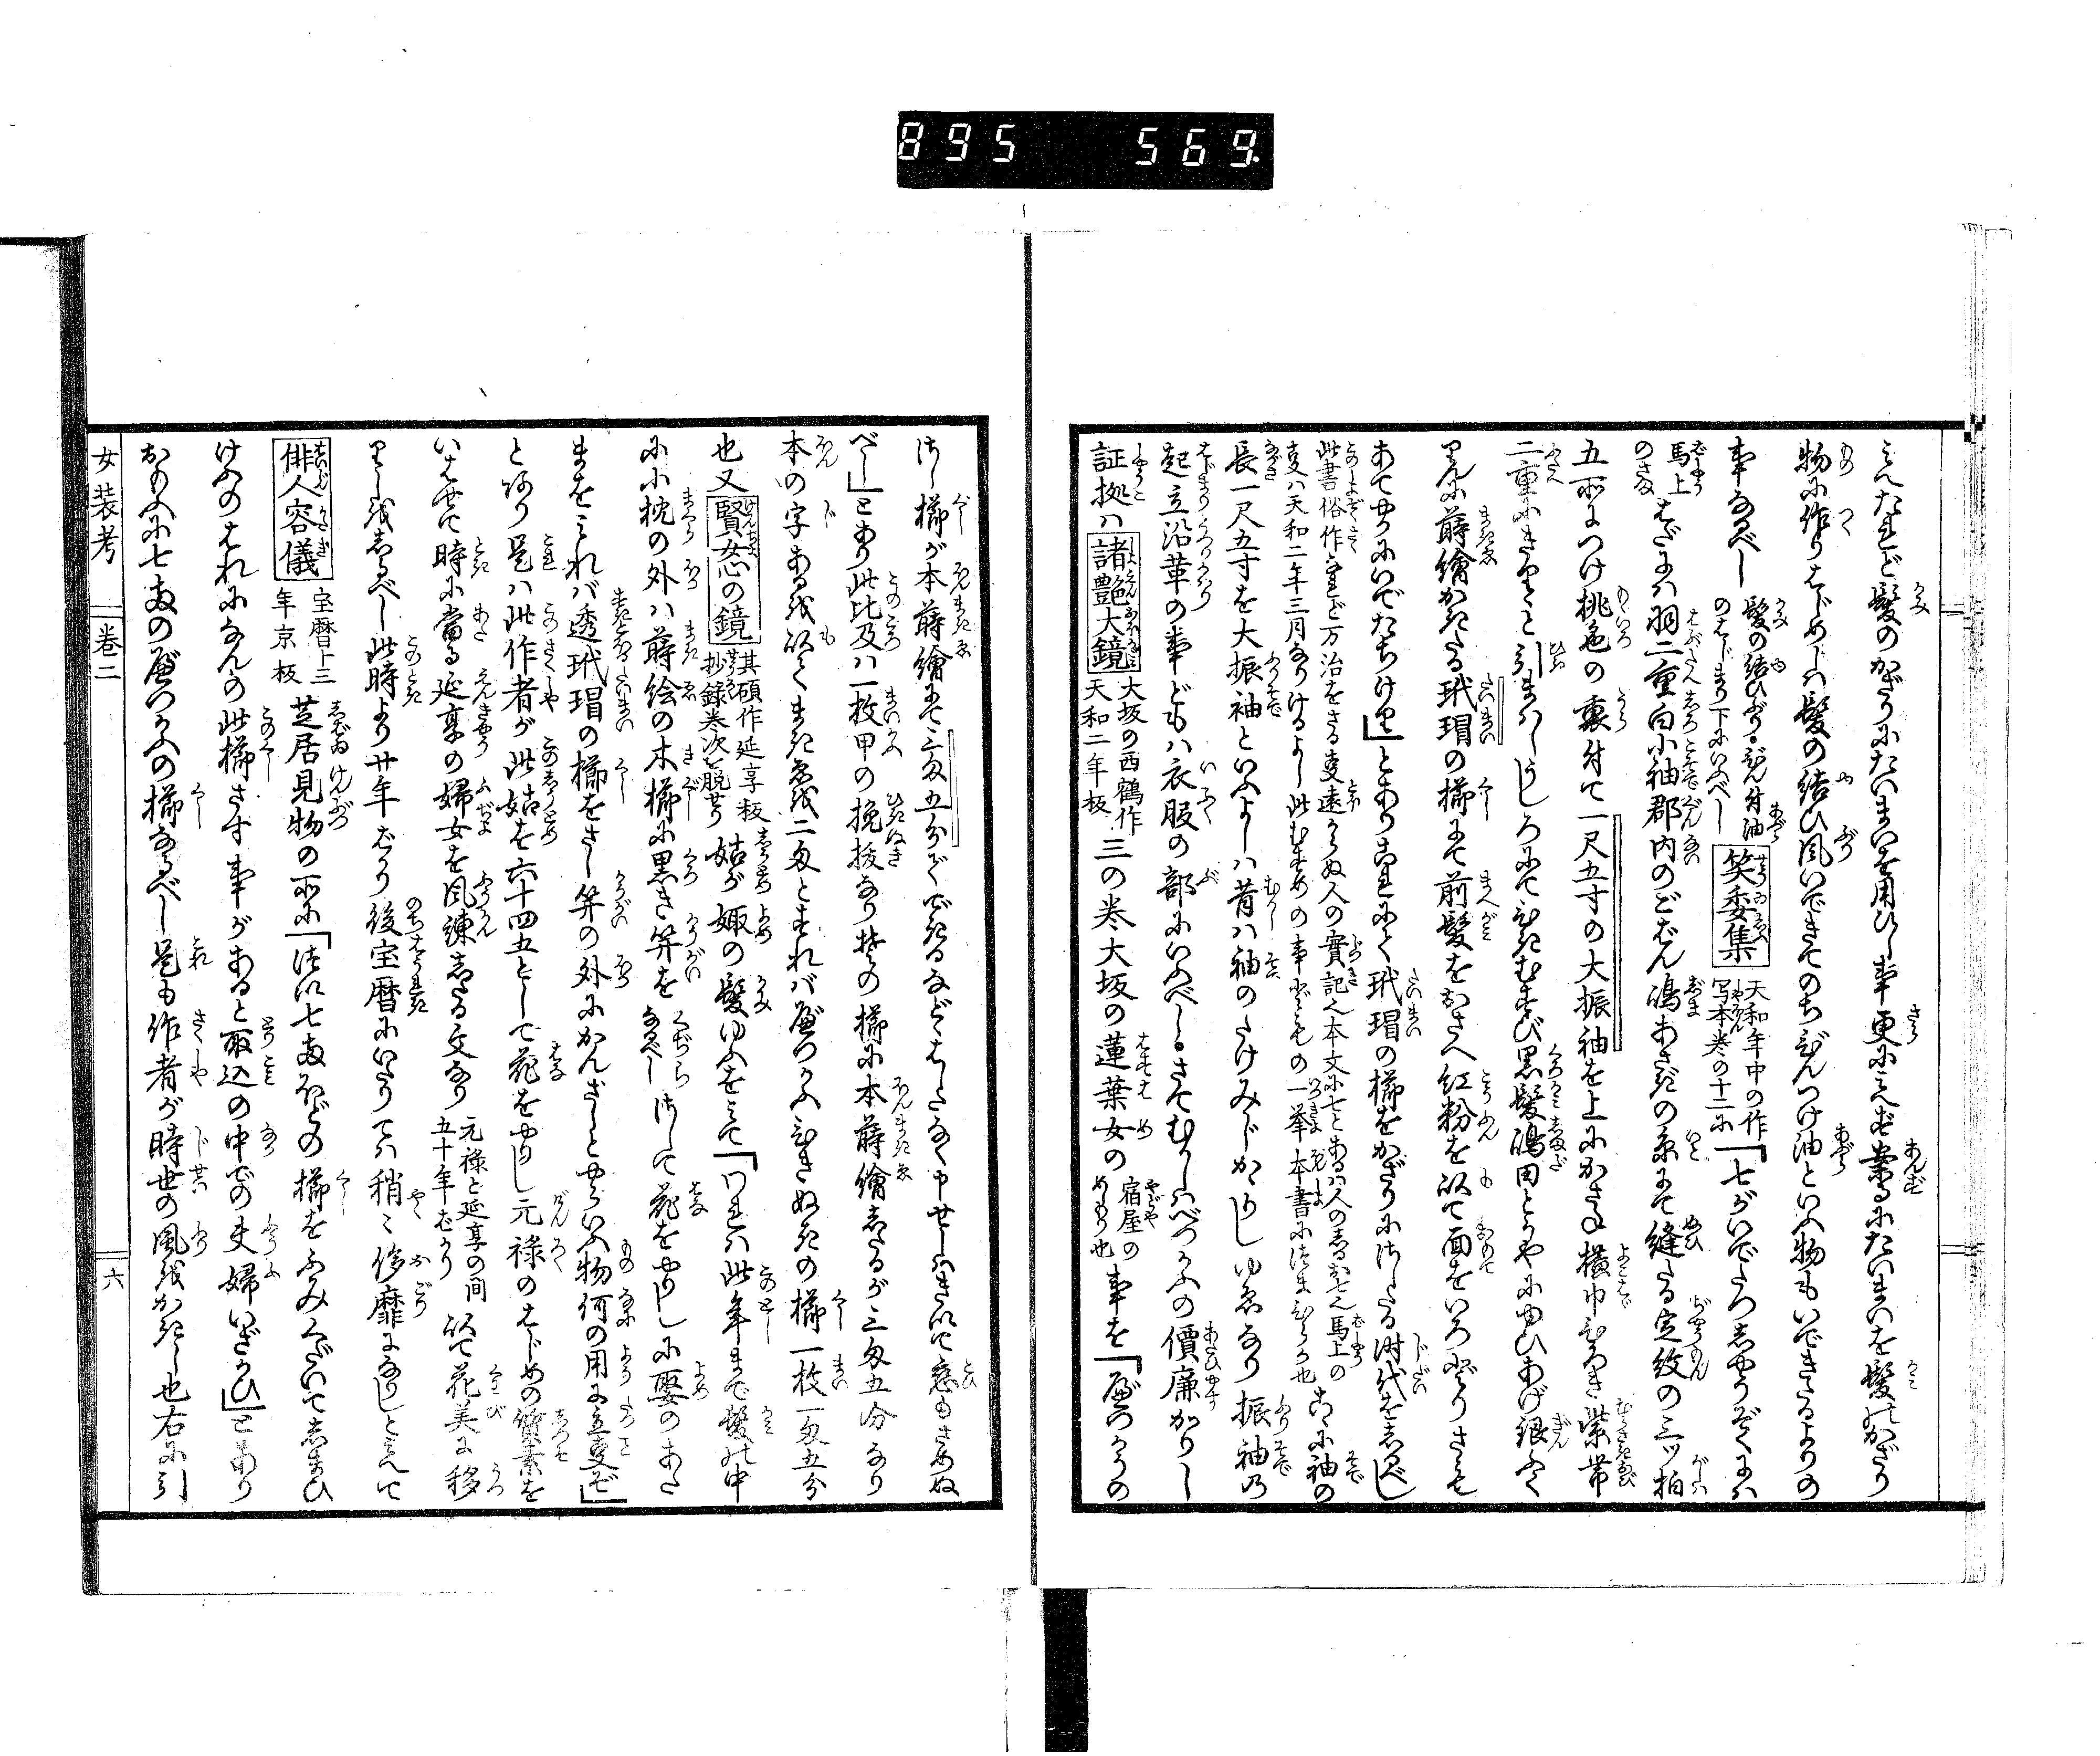 895 569.
みえたれど髪のかざりにたいまいを用ひし事更にみえず案るにたいまいを髪のかざり
物に作りはじめしは髪の結ひ風いできてのちびんつけ油といふ物もいできたるよりの
事なるべし 髪の結ひぶり・びん付油のはじまり下にいふべし 笑委集 天和年中の作写本巻の十二に 「七がいでたつしやうぞくには
馬上のさま はだには羽二重白小袖郡内のごばん嶋あさぎの糸にて縫たる定紋の三ッ柏
五所につけ桃色の裏付て一尺五寸の大振袖を上にかさね横巾ひろき紫帯
二重にきりゝと引まはしうしろにてひきむすび黒髪嶋田とかやにゆひあげ銀ふく
りんに蒔繪かきたる玳瑁の櫛にて前髪をおさへ紅粉を以て面をいろどりさもそ
あてやかにいでたちけり」とありこれにて玳瑁の櫛をかざりにさしたる時代をしるべし
此書俗作なれど万治をさる事遠からぬ人の實記也本文に七とあるは人のしるお七也馬上の
事は天和二年三月なりけるよし此むすめの事どもの一挙本書につまびらか也 こゝに袖の
長一尺五寸を大振袖といふよしは昔は袖のたけみじかゝりしゆゑなり振袖乃
起立沿革の事どもは衣服の部にいふべし。さてむかしはべつかふの價廉かりし
証拠は 諸艶大鏡 大坂の西鶴作天和二年板 三の巻大坂の蓮葉女の 宿屋のめしもり也 事を「べつかうの
さし櫛が本蒔繪にて三匁五分でできるなどゝはしたなく申せしはきゝて戀もさめぬ
べし」とあり此比及は一枚甲の挽抜なり其の櫛に本蒔繪したるが三匁五分なり
本の字あるを以てまきゑを二匁とすればべつかふひきぬきの櫛一枚一匁五分
也又 賢女心の鏡 其磧作延享板抄録巻次を脱せり 姑が娵の髪ゆふをみて「われは此年まで髪の中
に小枕の外は蒔絵の木櫛に黒き笄を くぢらなるべし さして花をやりしに娶のあた
まをみれば透玳瑁の櫛をさし笄の外にかんざしとやらいふ物何の用に立事ぞ」
とあり是は此作者が此姑を六十四五として花をやりし元禄のはじめの質素を
いはせて時に當る延享の婦女を風諫したる文なり 元禄と延享の間五十年ばかり 以て花美に移
りしをしるべし此時より廿年ばかり後宝暦にいたりては稍〻侈靡になりしとみえて
俳人容儀 宝暦十三年京板 芝居見物の所に「さい七両ほどの櫛をふみくだいてしまひ
けふのはれになんの此櫛さす事があると取込の中での夫婦いさかひ」とあり
おもふに七両のべつかふの櫛なるべし是も作者が時世の風をかきし也右に引
女装考 巻二 六